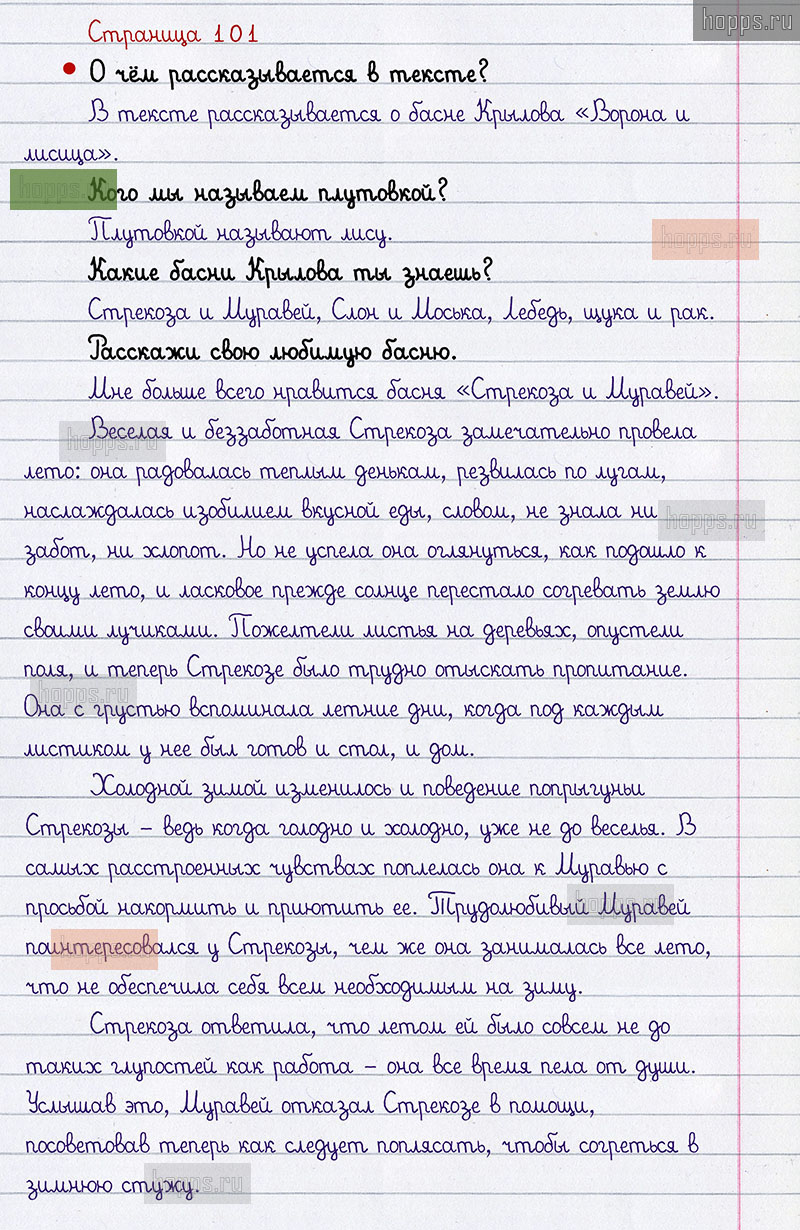 hopps.ru
Страница 101
• О чём рассказывается в тексте?
В тексте рассказывается о басне Крылова «Ворона и
лисица».
hopps.ru
Кого мы называем плутовкой?
Плутовкой называют лису.
hopps.ru
Какие басни Крылова ты знаешь?
Стрекоза и Муравей, Слон и Моська, Лебедь, щука и рак.
Расскажи свою любимую басню.
Мне больше всего нравится басня «Стрекоза и Муравей».
Веселая и беззаботная Стрекоза замечательно провела
hopps.ru
лето: она радовалась теплым денькам, резвилась по лугам,
наслаждалась изобилием вкусной еды, словом, не знала ни
hopps.ru
забот, ни хлопот. Но не успела она оглянуться, как подошло к
концу лето, и ласковое прежде солнце перестало согревать землю
своими лучиками. Пожелтели листья на деревьях, опустели
поля, и теперь Стрекозе было трудно отыскать пропитание.
hopps.ru
Она с грустью вспоминала летние дни, когда под каждым
листиком у нее был готов и стол, и дом.
Холодной зимой изменилось и поведение попрыгуньи
Стрекозы – ведь когда голодно и холодно, уже не до веселья. В
самых расстроенных чувствах поплелась она к Муравью с
просьбой накормить и приютить ее. Трудолюбивый Муравей
hopps.ru
поинтересовался у Стрекозы, чем же она занималась все лето,
что не обеспечила себя всем необходимым на зиму.
Стрекоза ответила, что летом ей было совсем не до
таких глупостей как работа – она все время пела от души.
Услышав это, Муравей отказал Стрекозе в помощи,
посоветовав теперь как следует поплясать, чтобы согреться в
зимнюю стужу.
hopps.ru